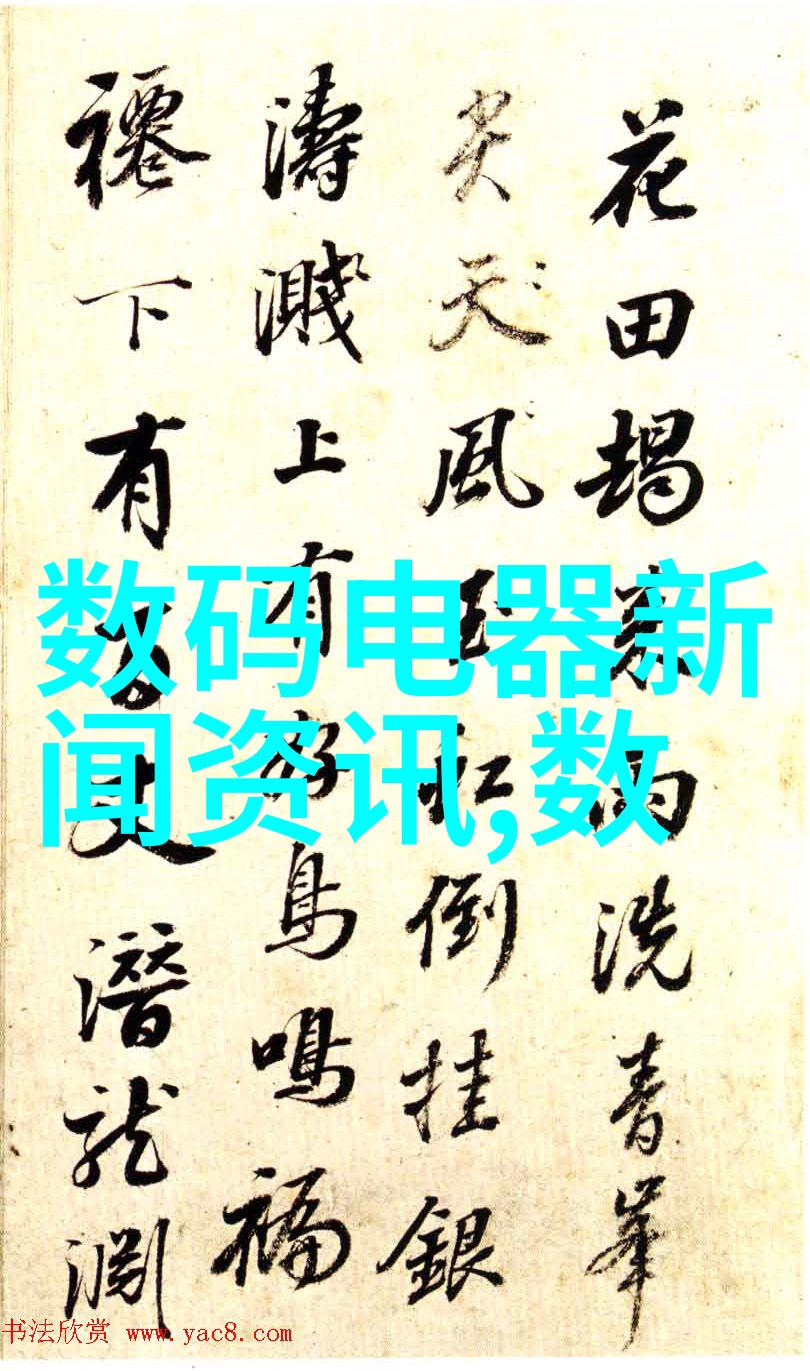 花田雨洗青峯
尖天風玉虹倒挂銀
濤濺上有好鳥鳴福
下有潛龍淵
数码电器新
闻资讯,数
书法欣赏 www.yac8.com